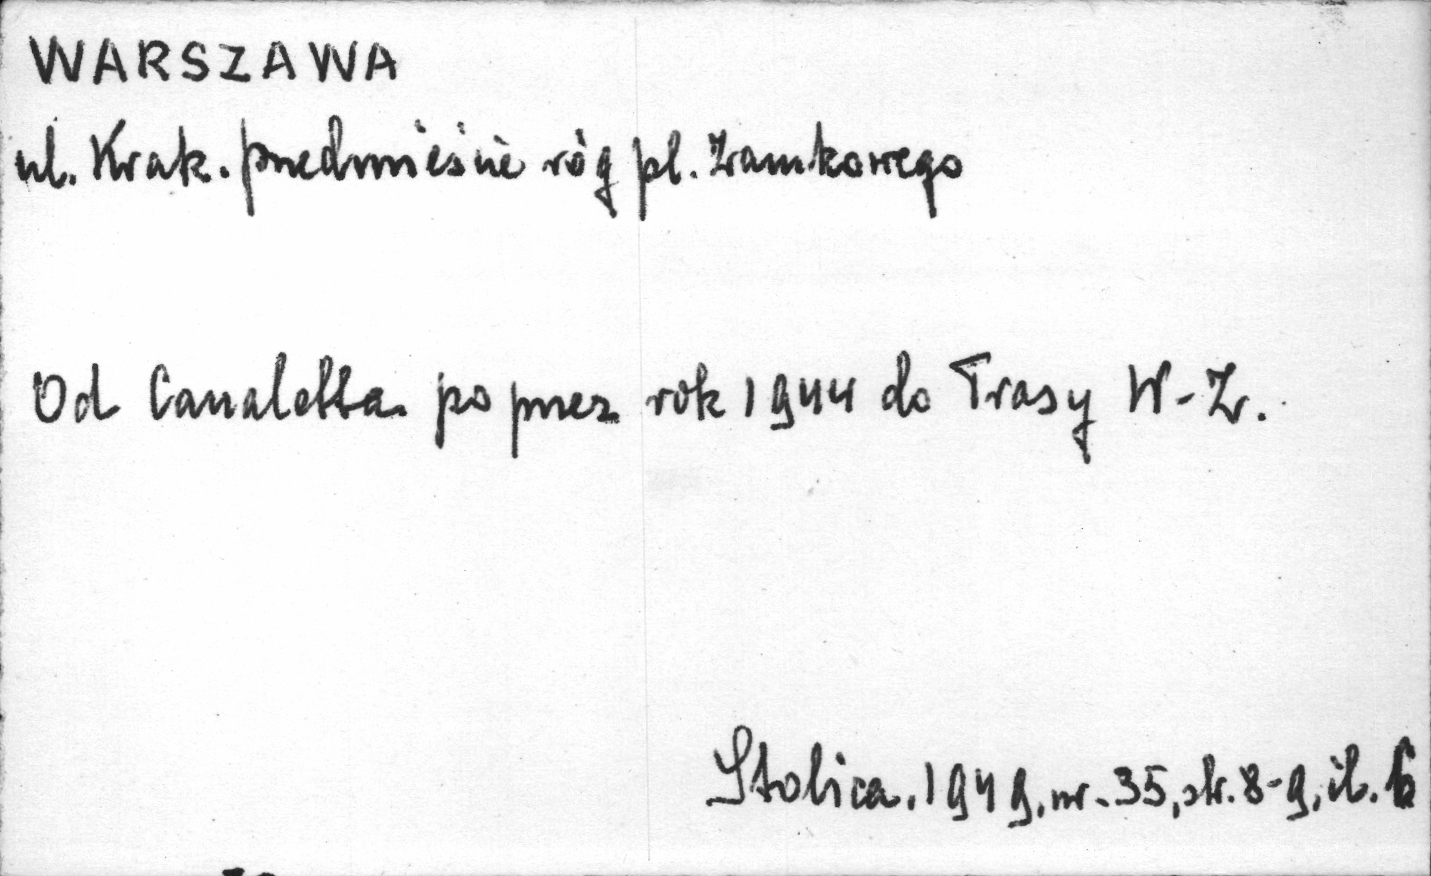 WARSZAWA
ul. Krak. przedmieście róg pl. Zamkowego
Od Canaletta poprzez rok 1944 do Trasy W-Z.
Stolica. 1949, nr. 35, str. 8-9, il. 6